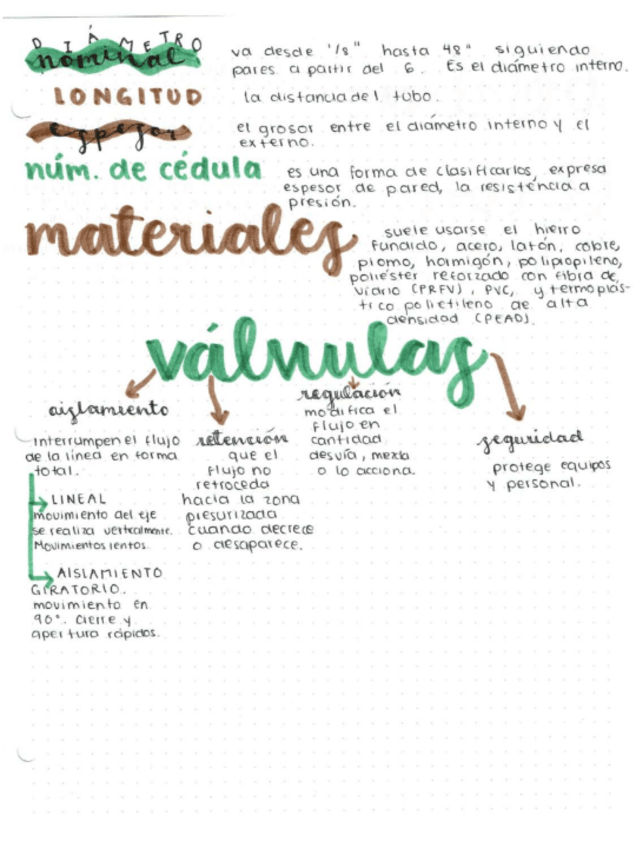 DIÁMETRO
nominal
va desde 1/8" hasta 48" siguiendo
pares a partir del 6. Es el diámetro interno.
LONGITUD
la distancia del tubo.
espesor
el grosor entre el diámetro interno y el
externo.
núm. de cédula
es una forma de clasificarlos, expresa
espesor de pared, la resistencia a
presión.
materiales
suele usarse el hierro
fundido, acero, latón, cobre,
plomo, hormigón, polipropileno,
poliéster reforzado con fibra de
vidrio (PRFV), PVC, y termoplás-
tico polietileno de alta
densidad (PEAD).
válvulas
aislamiento
Interrumpen el flujo
de la línea en forma
total.
LINEAL
movimiento del eje
se realiza verticalmente.
Movimientos lentos.
AISLAMIENTO
GIRATORIO.
movimiento en
90°. Cierre y
apertura rápidos.
retención
que el
flujo no
retroceda
hacia la zona
presurizada
cuando decrece
o desaparece.
regulación
modifica el
flujo en
cantidad
desvía, mezla
o lo acciona.
seguridad
protege equipos
y personal.